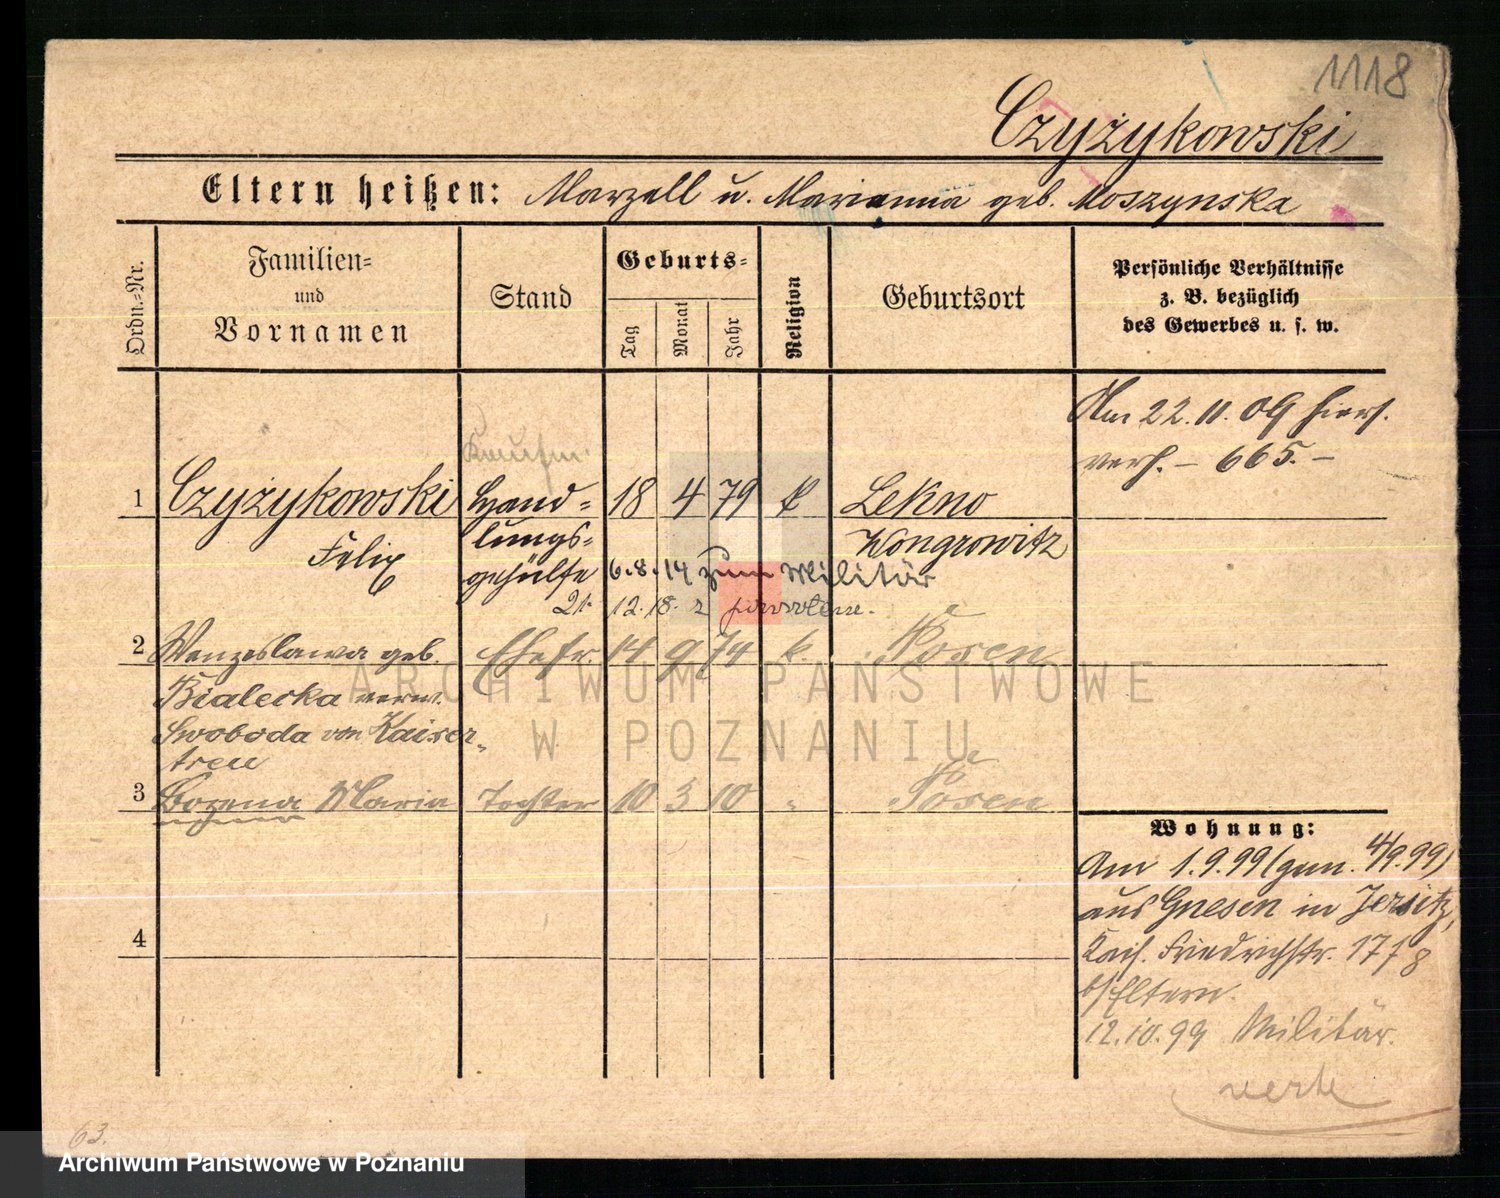 1118
Czyżykowski
Eltern heißen: Marzell u. Marianna geb. Moszynska
Ordn.-Nr.
Familien-
und
Vornamen
Stand
Geburts-
Tag
Monat
Jahr
Religion
Geburtsort
Persönliche Verhältnisse
z. B. bezüglich
des Gewerbes u. s. w.
Am 22.11.09 hiers.
verh. - 665. -
Kaufm.
1 Czyżykowski Hand- 18 4 79 k Lekno
Felix lungs- Wongrowitz
gehülfe 6.8.14 zum Militär
21. 12. 18. z
2 Wenzeslawa geb. Ehefr. 14 9 74 k. Posen
Bialecka verw.
Swoboda von Kaiser-
treu
3 Bozena Maria Tochter 10 3 10 " Posen
4
Wohnung:
Am 1.9.99 (gem. 4/9.99)
aus Gnesen in Jersitz,
Kais. Friedrichstr. 17/18
b/Eltern.
12.10.99 Militär.
verte
63.
ARCHIWUM PAŃSTWOWE
W POZNANIU
Archiwum Państwowe w Poznaniu